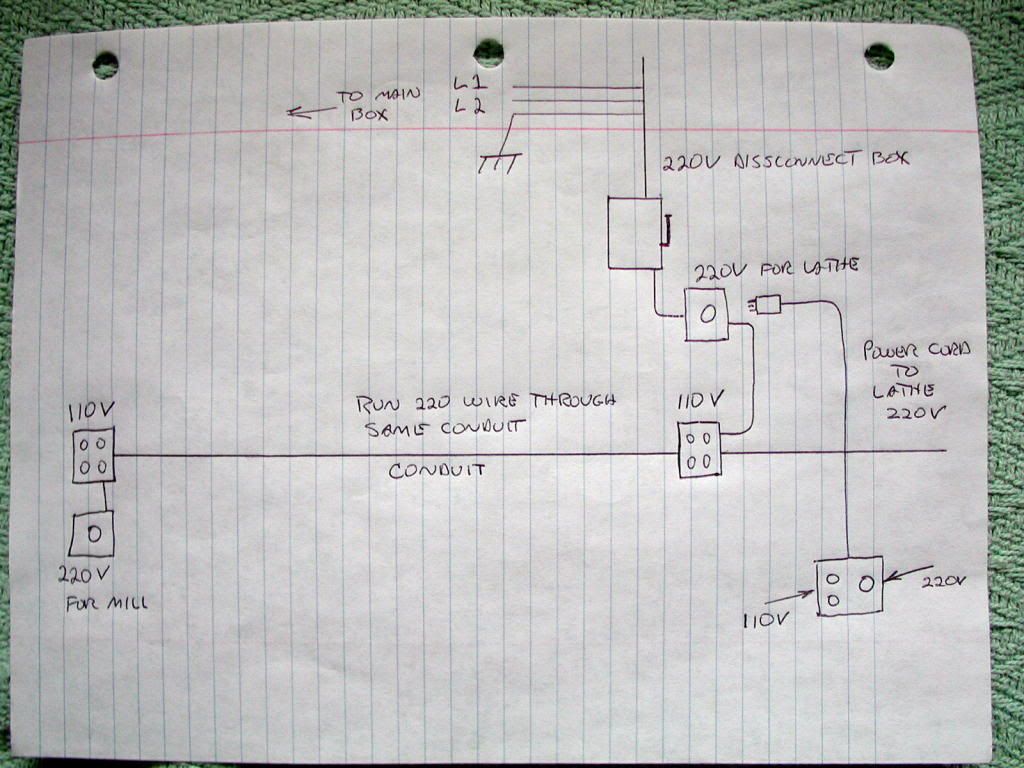 L1
TO MAIN
BOX
L2
220V DISSCONNECT BOX
220V FOR LATHE
POWER CORD
TO
LATHE
220V
110V
RUN 220 WIRE THROUGH
SAME CONDUIT
110V
CONDUIT
220V
FOR MILL
220V
110V